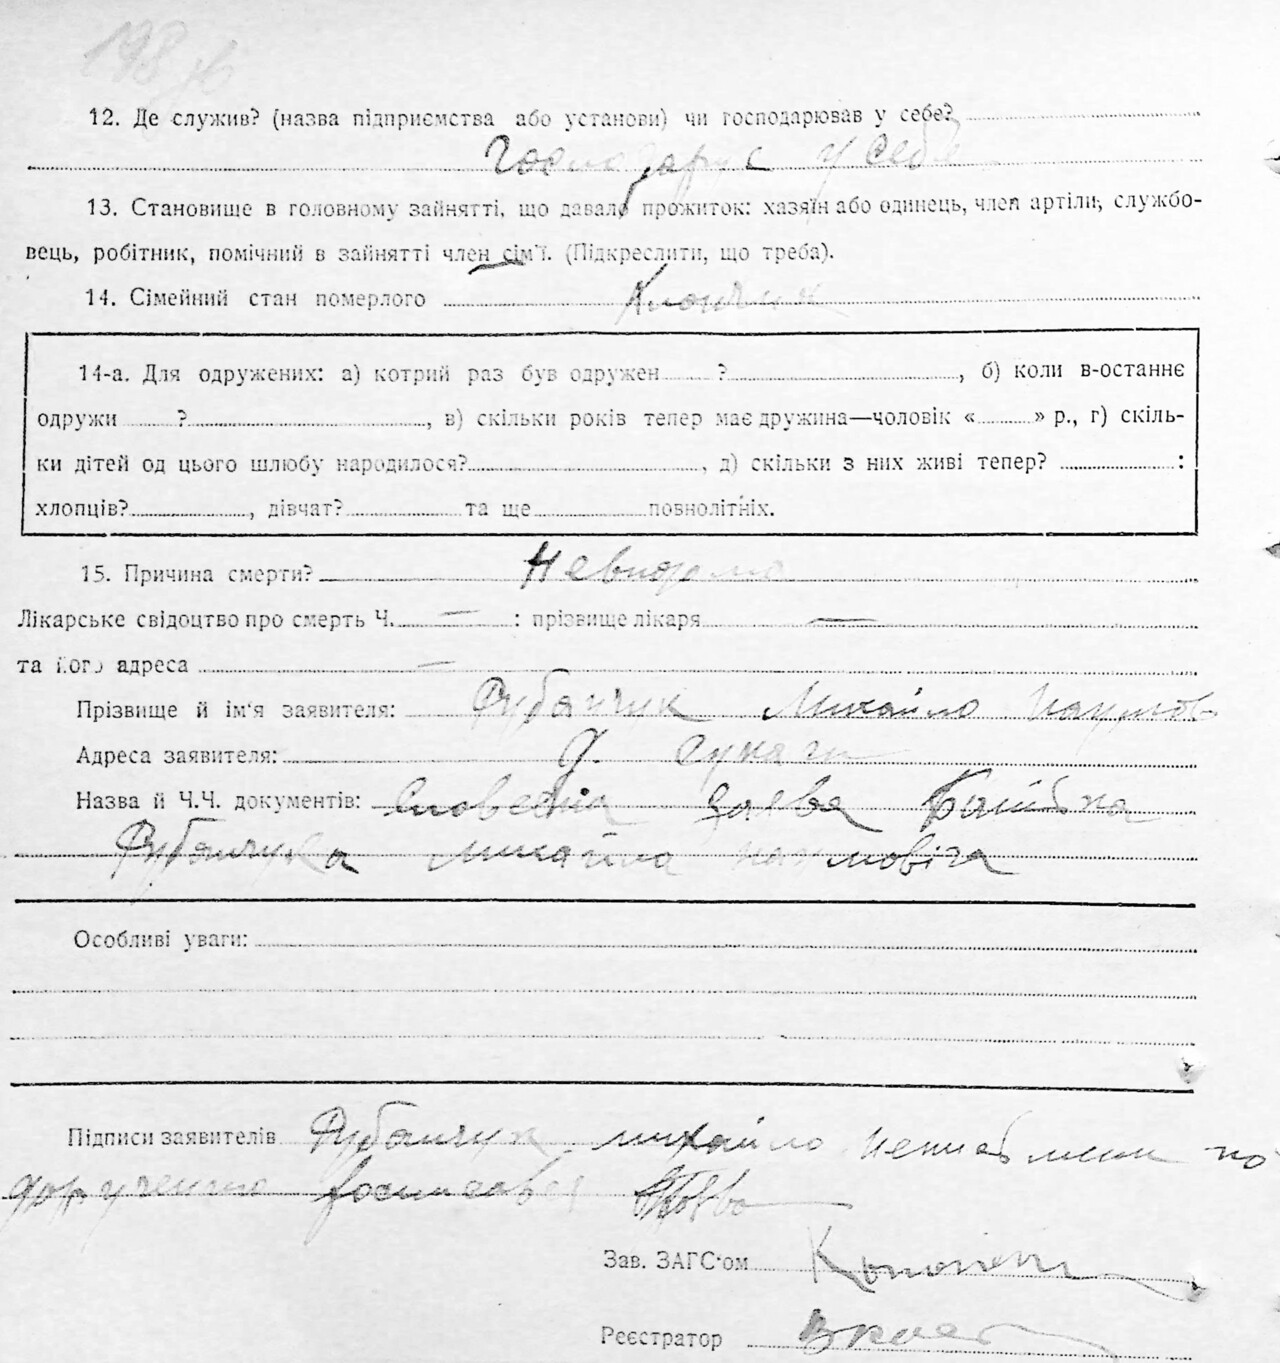 198 зв
12. Де служив? (назва підприємства або установи) чи господарював у себе?
Господарує у себе
13. Становище в головному зайнятті, що давало прожиток: хазяїн або одинець, член артілі, службо-
вець, робітник, помічний в зайнятті член сім'ї. (Підкреслити, що треба).
14. Сімейний стан померлого Хлопчик
14-а. Для одружених: а) котрий раз був одружен ? , б) коли в-останнє
одружи ? , в) скільки років тепер має дружина—чоловік « » р., г) скіль-
ки дітей од цього шлюбу народилося? , д) скільки з них живі тепер? :
хлопців? , дівчат? та ще повнолітніх.
15. Причина смерти? Невидомо
Лікарське свідоцтво про смерть Ч. — : прізвище лікаря —
та його адреса —
Прізвище й ім'я заявителя: Рубанчук Михайло Наумов
Адреса заявителя:
Назва й Ч.Ч. документів: Словесна заява Батька
Рубанчука Михайла Наумовіча
Особливі уваги:
Підписи заявителів Рубанчук Михайло неписьмени по
дорученню росписався
Зав. ЗАГС'ом
Реєстратор